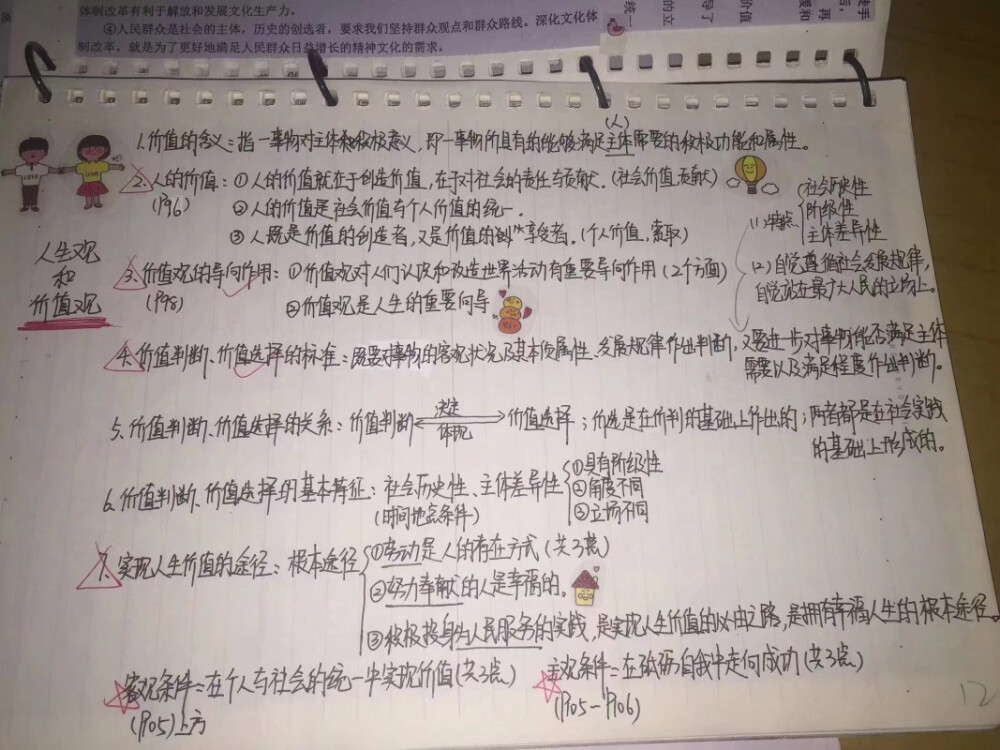 体制改革有利于解放和发展文化生产力。
④人民群众是社会的主体，历史的创造者，要求我们坚持群众观点和群众路线，深化文化体
制改革，就是为了更好地满足人民群众日益增长的精神文化的需求。
人生观
和
价值观
1.价值的含义：指一事物对主体的积极意义，即一事物所具有的能够满足主体需要的积极功能和属性。
(人)
2.人的价值：①人的价值就在于创造价值，在于对社会的责任与贡献。(社会价值，贡献)
(P96)
②人的价值是社会价值与个人价值的统一.
③人既是价值的创造者，又是价值的享受者.(个人价值，索取)
(1)特点
社会历史性
阶级性
主体差异性
(2)自觉遵循社会发展规律，
自觉站在最广大人民的立场上。
3.价值观的导向作用：①价值观对人们认识和改造世界活动有重要导向作用(2个方面)
(P98)
②价值观是人生的重要向导
4.价值判断、价值选择的标准：既要对事物的客观状况及其本质属性、发展规律作出判断，又要进一步对事物能否满足主体
需要以及满足程度作出判断。
5.价值判断、价值选择的关系：价值判断 决定 体现 价值选择；价选是在价判的基础上作出的；两者都是在社会实践
的基础上形成的。
6.价值判断、价值选择的基本特征：社会历史性、主体差异性
(时间地点条件)
①具有阶级性
②角度不同
③立场不同
7.实现人生价值的途径：根本途径
①劳动是人的存在方式(共3点)
②努力奉献的人是幸福的。
③积极投身为人民服务的实践，是实现人生价值的必由之路，是拥有幸福人生的根本途径。
客观条件：在个人与社会的统一中实现价值(共3点)
(P105)上方
主观条件：在砥砺自我中走向成功(共3点)
(P105-P106)
12